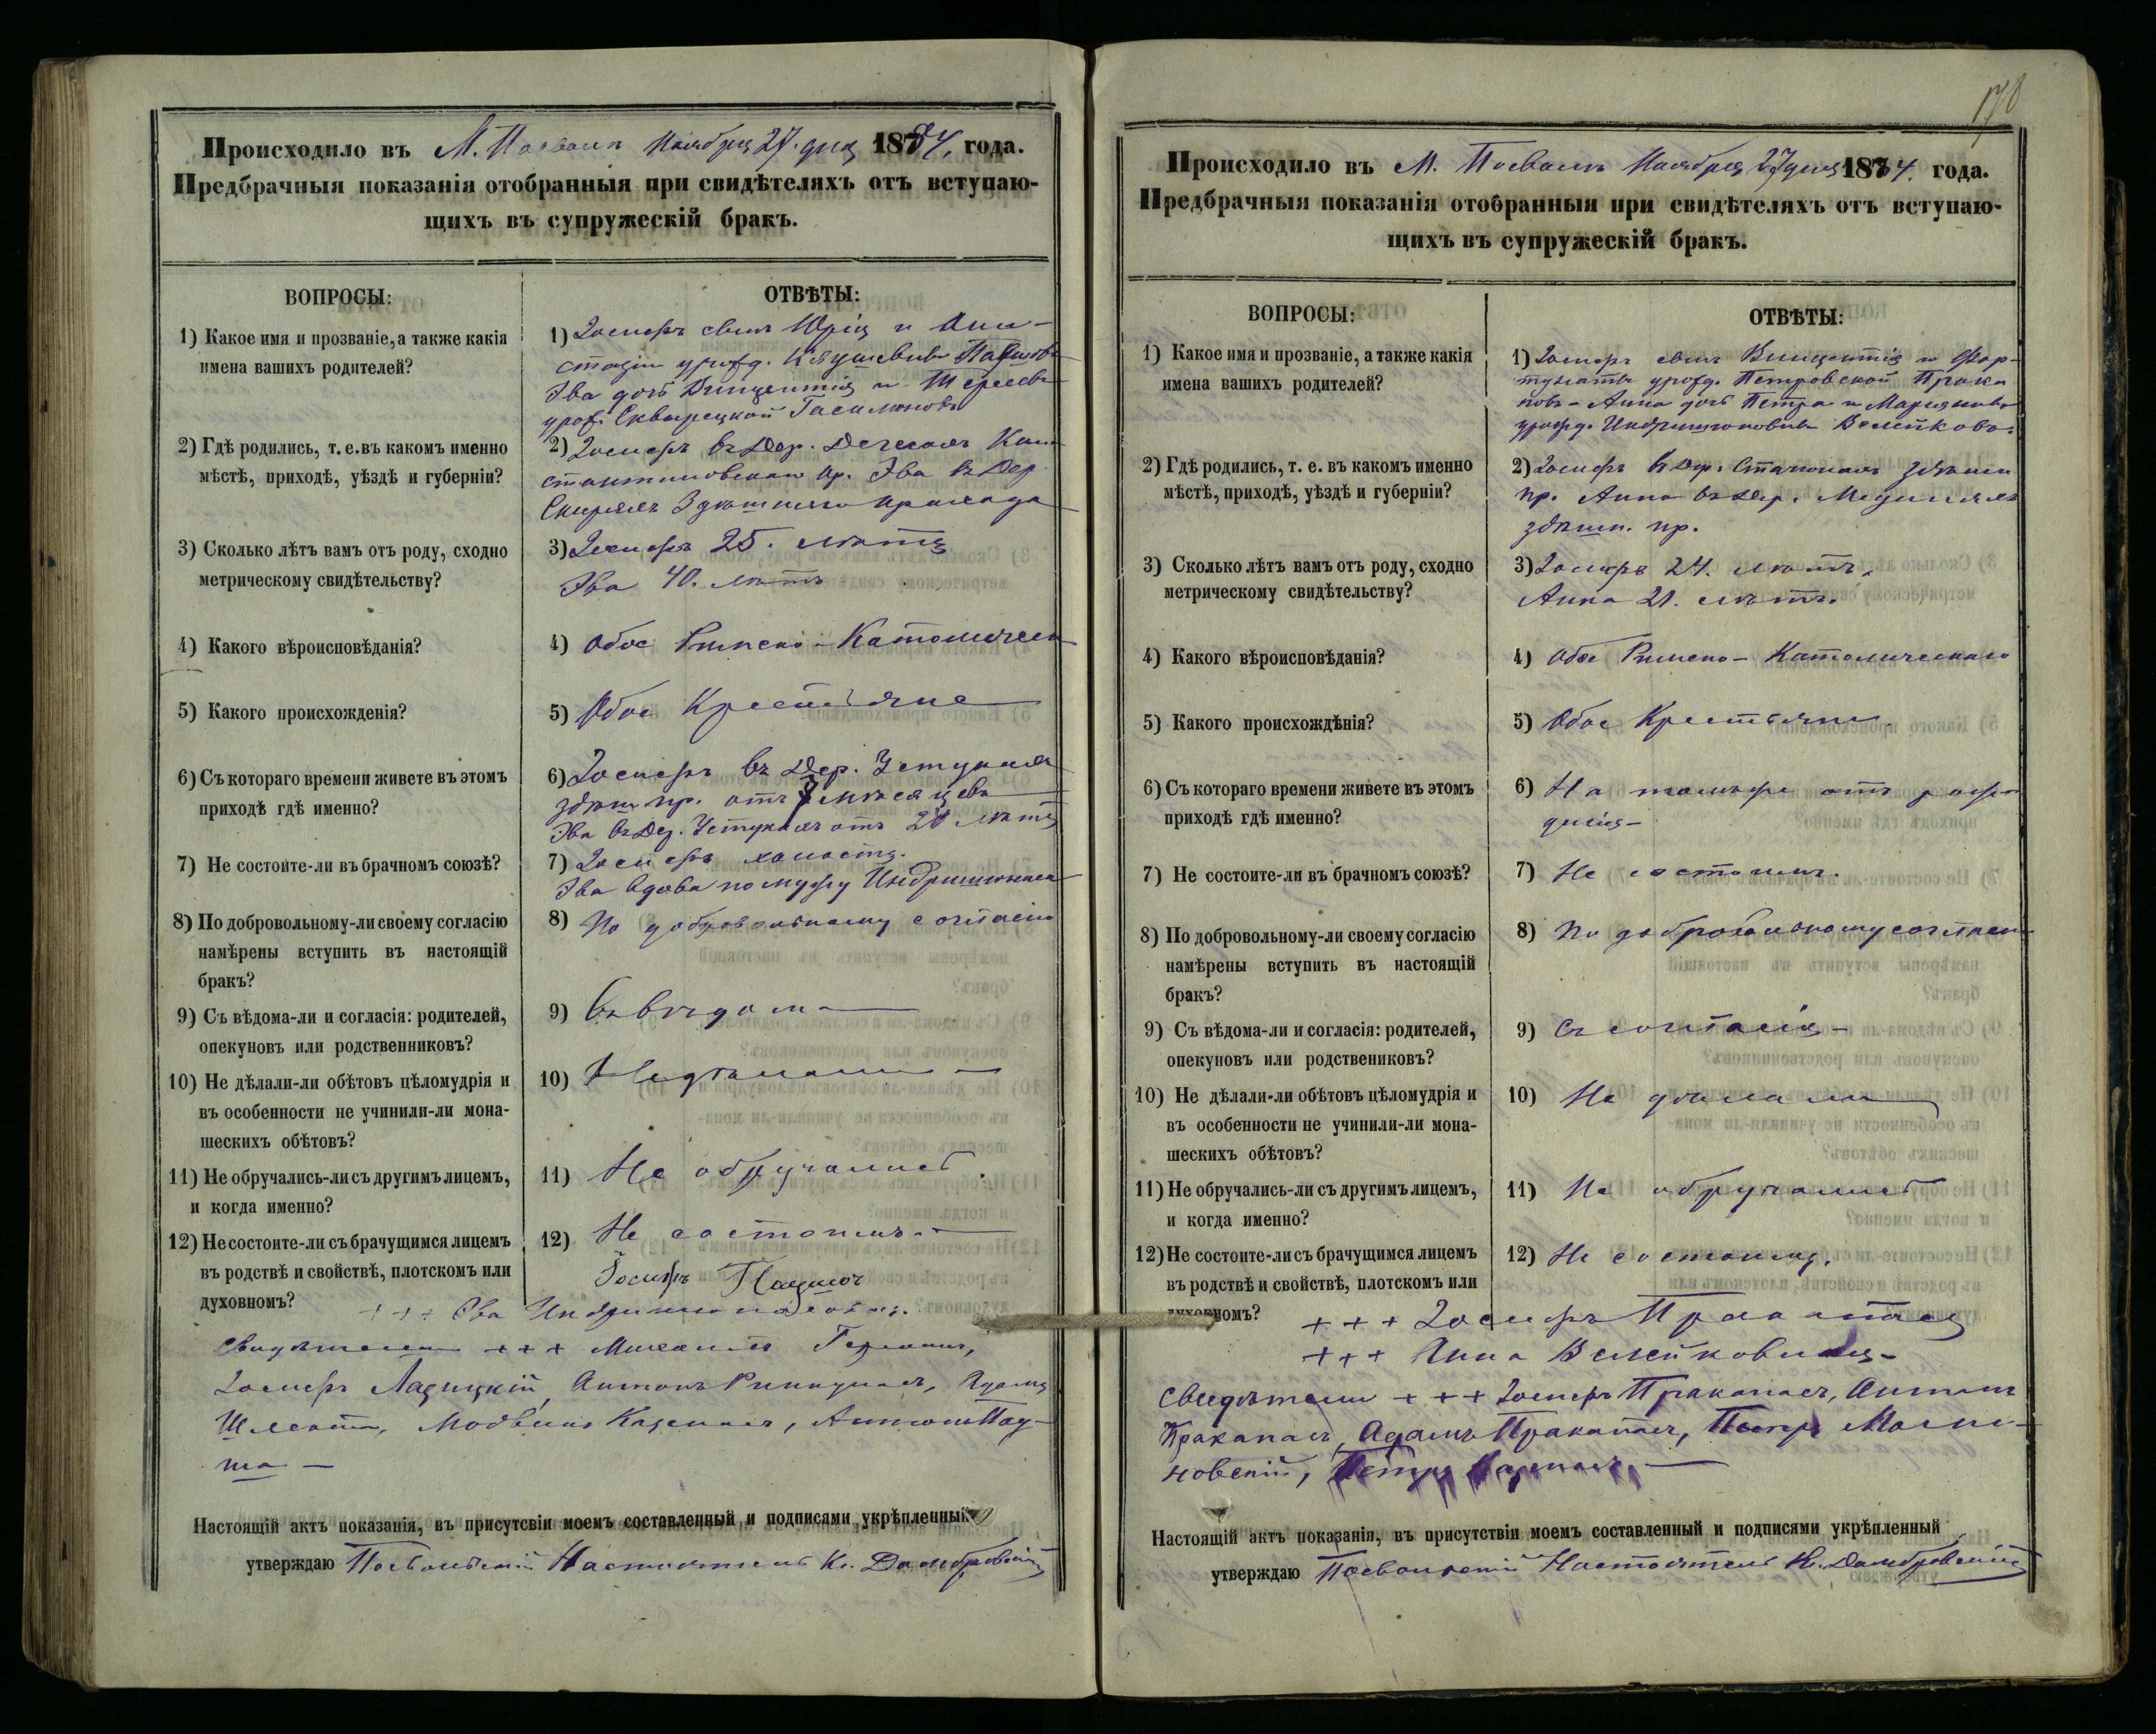 Происходило въ М. Посволѣ Ноября 27 дня 1884, года.
Предбрачныя показанія отобранныя при свидѣтеляхъ отъ вступаю-
щихъ въ супружескій бракъ.
ВОПРОСЫ:
ОТВѢТЫ:
1) Какое имя и прозваніе, а также какія
имена вашихъ родителей?
1) Іосифъ сынъ Юрія и Ана-
стазіи урожд.
Эва дочь Винцентія и Терезы
урож. Сквирецкой
2) Гдѣ родились, т. е. въ какомъ именно
мѣстѣ, приходѣ, уѣздѣ и губерніи?
2) Іосифъ въ Дер. Кон-
стантиновскаго пр. Эва въ Дер.
Здѣшняго прихода
3) Сколько лѣтъ вамъ отъ роду, сходно
метрическому свидѣтельству?
3) Іосифъ 25. лѣтъ
Эва 40. лѣтъ
4) Какого вѣроисповѣданія?
4) Обое Римско-Католическ
5) Какого происхожденія?
5) Обое Крестьяне
6) Съ котораго времени живете въ этомъ
приходѣ гдѣ именно?
6) Іосифъ въ Дер. Устукахъ
здѣш. пр. отъ 7 мѣсяцевъ
Эва въ Дер. Устукахъ отъ 20 лѣтъ
7) Не состоите-ли въ брачномъ союзѣ?
7) Іосифъ холостъ.
Эва вдова по мужу Индришюнасъ
8) По добровольному-ли своему согласію
намѣрены вступить въ настоящій
бракъ?
8) По добровольному согласію
9) Съ вѣдома-ли и согласія: родителей,
опекуновъ или родственниковъ?
9) Съ вѣдома
10) Не дѣлали-ли обѣтовъ цѣломудрія и
въ особенности не учинили-ли мона-
шескихъ обѣтовъ?
10) Не дѣлали
11) Не обручались-ли съ другимъ лицемъ,
и когда именно?
11) Не обручались.
12) Не состоите-ли съ брачущимся лицемъ
въ родствѣ и свойствѣ, плотскомъ или
духовномъ?
12) Не состоимъ.
Іосифъ
+ + + Эва
Свидѣтели + + + Михаилъ
Іосифъ Ладицкій, Антонъ, Адамъ
Антонъ Пау-
ша
Настоящій актъ показанія, въ присутсвіи моемъ составленный и подписями укрѣпленный
утверждаю Посвольскій Настоятель Кс. Домбровскій
170
Происходило въ М. Посволѣ Ноября 27 дня 1884. года.
Предбрачныя показанія отобранныя при свидѣтеляхъ отъ вступаю-
щихъ въ супружескій бракъ.
ВОПРОСЫ:
ОТВѢТЫ:
1) Какое имя и прозваніе, а также какія
имена вашихъ родителей?
1) Іосифъ сынъ Винцентія и Фор-
тунаты урожд. Петровской Прака
повъ - Анна дочь Петра и Маріанны
урожд. Индришюновны Велейково.
2) Гдѣ родились, т. е. въ какомъ именно
мѣстѣ, приходѣ, уѣздѣ и губерніи?
2) Іосифъ въ Дер. здѣшн
пр. Анна въ Дер.
здѣшн. пр.
3) Сколько лѣтъ вамъ отъ роду, сходно
метрическому свидѣтельству?
3) Іосифъ 24. лѣтъ.
Анна 21. лѣтъ.
4) Какого вѣроисповѣданія?
4) Обое Римско-Католическаго
5) Какого происхождѣнія?
5) Обое Крестьяне.
6) Съ котораго времени живете въ этомъ
приходѣ гдѣ именно?
6) отъ рож-
денія -
7) Не состоите-ли въ брачномъ союзѣ?
7) Не состоимъ.
8) По добровольному-ли своему согласію
намѣрены вступить въ настоящій
бракъ?
8) По добровольному согласію
9) Съ вѣдома-ли и согласія: родителей,
опекуновъ или родствениковъ?
9) Съ согласія -
10) Не дѣлали-ли обѣтовъ цѣломудрія и
въ особенности не учинили-ли мона-
шескихъ обѣтовъ?
10) Не дѣлали
11) Не обручались-ли съ другимъ лицемъ,
и когда именно?
11) Не обручались
12) Не состоите-ли съ брачущимся лицемъ
въ родствѣ и свойствѣ, плотскомъ или
духовномъ?
12) Не состоимъ.
+ + + Іосифъ
+ + + Анна
Свидѣтели + + + Іосифъ Пракапасъ, Антонъ
Пракапасъ, Адамъ Пракапасъ, Петръ Мали-
новскій, Петръ
Настоящій актъ показанія, въ присутствіи моемъ составленный и подписями укрѣпленный
утверждаю Посвольскій Настоятель Кс. Домбровскій